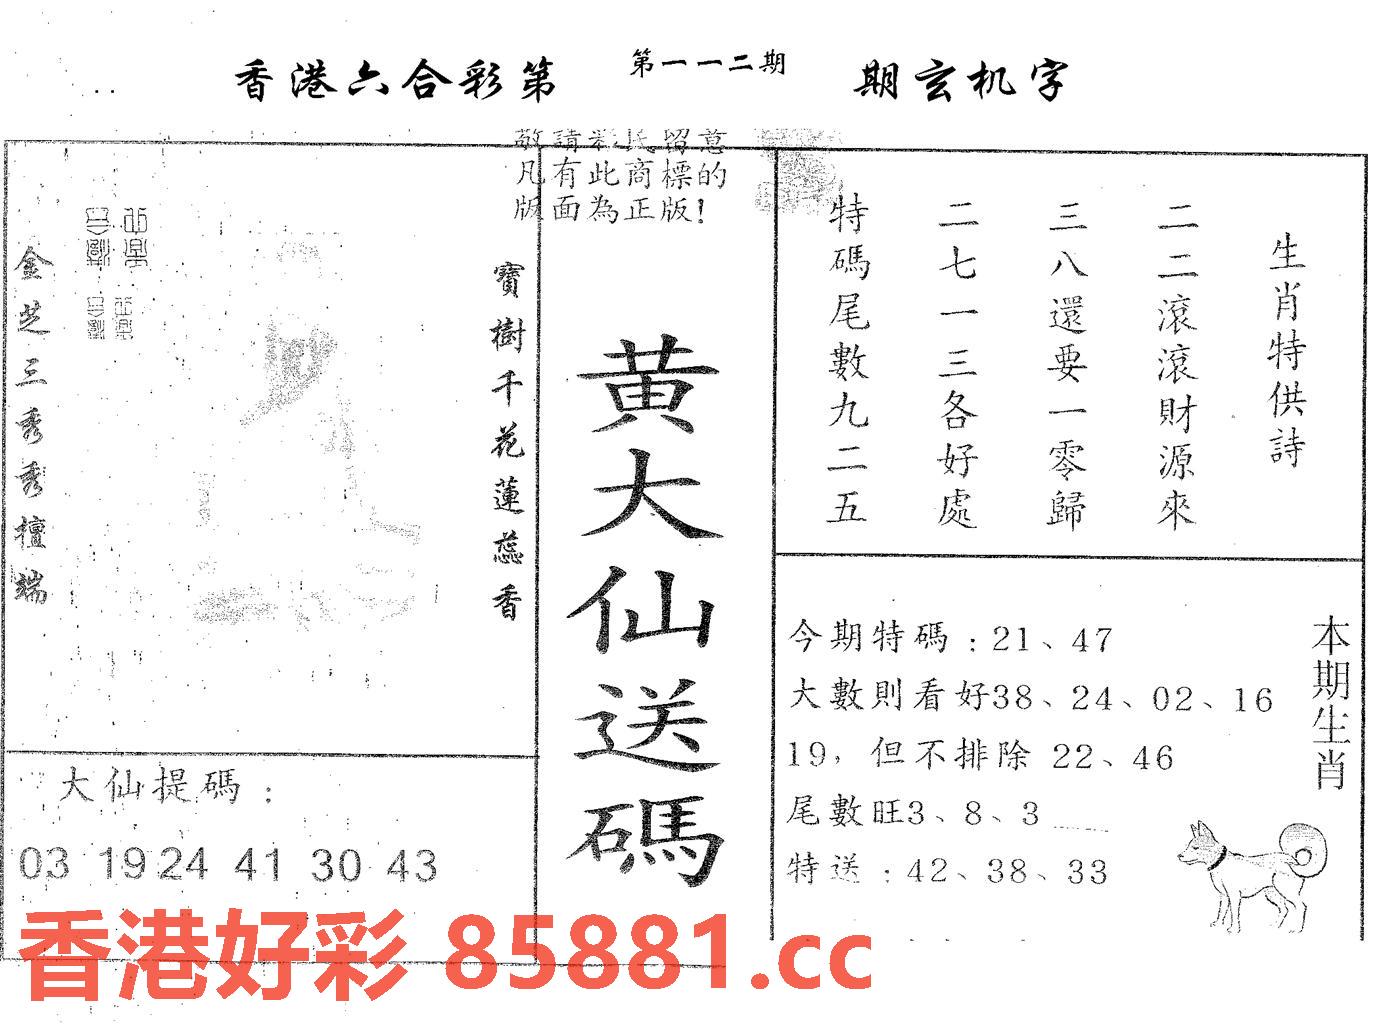 香港六合彩第 第一一二期 期玄机字
敬請彩民留意
凡有此商標的
版面為正版！
生肖特供詩
二二滾滾財源來
三八還要一零歸
二七一三各好處
特碼尾數九二五
寶樹千花蓮蕊香
金芝三秀秀檀端
黄大仙送碼
大仙提碼：
03 19 24 41 30 43
本期生肖
今期特碼：21、47
大數則看好38、24、02、16
19，但不排除 22、46
尾數旺3、8、3
特送：42、38、33
香港好彩 85881.cc